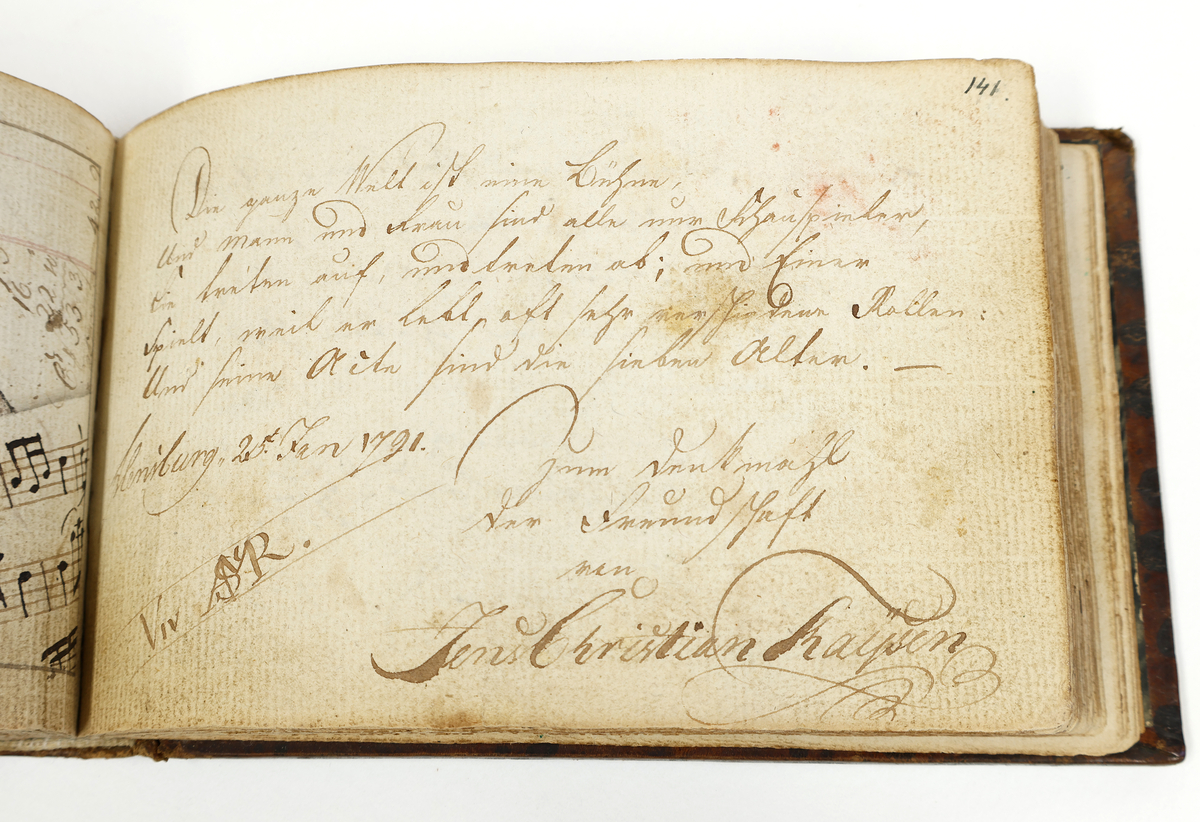 141.
Die ganze Welt ist eine Bühne,
Und Mann und Frau sind alle nur Schauspieler,
sie treten auf, und treten ab; und Einer
spielt, weil er lebt, oft sehr verschiedene Rollen:
Und seine Acte sind die sieben Alter. —
25t Jan 1791.
Zum Denkmahl
der Freundschaft
von
Jens Christian
Viv